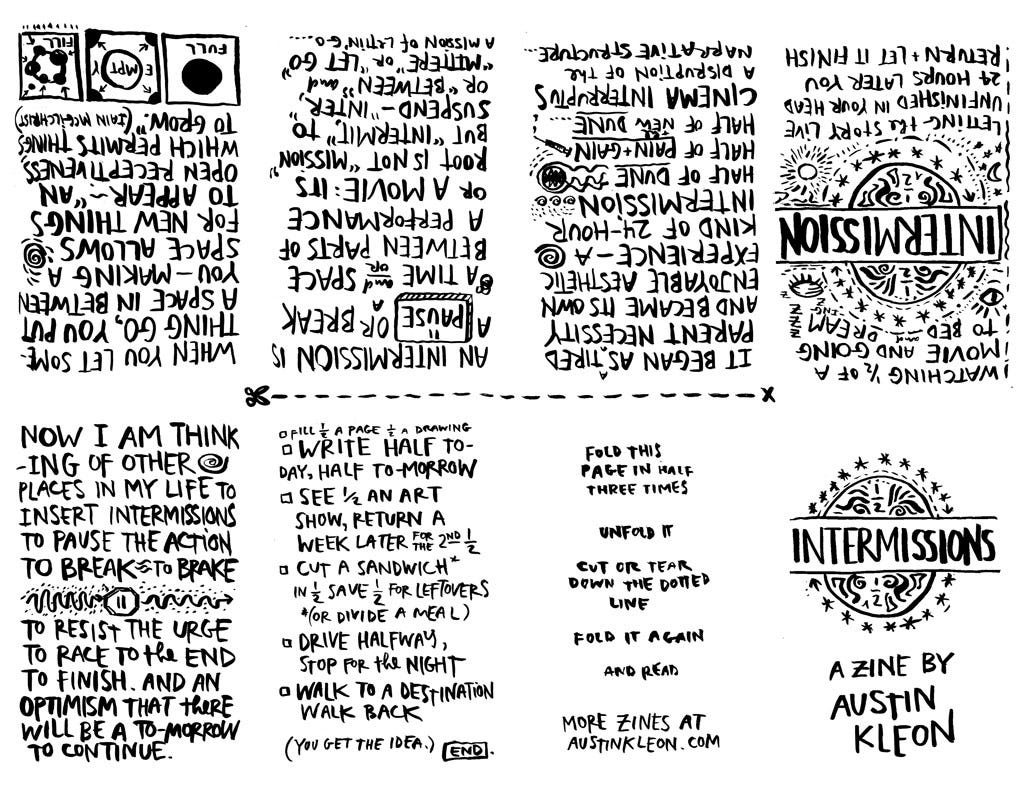 ½
INTERMISSIONS
½
A ZINE BY
AUSTIN
KLEON
WATCHING ½ OF A
MOVIE AND GOING
TO BED and DREAM
ING
Z Z Z
½
INTERMISSION
½
LETTING the STORY LIVE
UNFINISHED IN YOUR HEAD
24 HOURS LATER YOU
RETURN + LET IT FINISH
IT BEGAN AS ^ TIRED
PARENT NECESSITY
AND BECAME ITS OWN
ENJOYABLE AESTHETIC
EXPERIENCE — A
KIND OF 24-HOUR
INTERMISSION
HALF OF DUNE
HALF OF PAIN + GAIN
HALF OF NEW DUNE
CINEMA INTERRUPTUS
A DISRUPTION OF the
NARRATIVE STRUCTURE...
AN INTERMISSION IS
A PAUSE OR A BREAK
A TIME and or SPACE
BETWEEN PARTS OF
A PERFORMANCE
OR A MOVIE: ITS
ROOT IS NOT "MISSION"
BUT "INTERMIT," TO
SUSPEND — "INTER,"
OR "BETWEEN" and
"MITTERE" OR "LET GO"
A MISSION OF LETTIN' GO...
WHEN YOU LET SOME-
THING GO, YOU PUT
A SPACE IN BETWEEN
YOU — MAKING A
SPACE ALLOWS
FOR NEW THINGS
TO APPEAR — "AN
OPEN RECEPTIVENESS
WHICH PERMITS THINGS
TO GROW." (IAIN McGILCHRIST)
FULL
EMPTY
FILL
NOW I AM THINK
-ING OF OTHER
PLACES IN MY LIFE TO
INSERT INTERMISSIONS
TO PAUSE THE ACTION
TO BREAK ≈ TO BRAKE
TO RESIST THE URGE
TO RACE TO the END
TO FINISH. AND AN
OPTIMISM THAT there
WILL BE A TO-MORROW
TO CONTINUE.
□ FILL ½ A PAGE ½ A DRAWING
□ WRITE HALF TO-
DAY, HALF TO-MORROW
□ SEE ½ AN ART
SHOW, RETURN A
WEEK LATER FOR THE 2ND ½
□ CUT A SANDWICH*
IN ½ SAVE ½ FOR LEFTOVERS
*(OR DIVIDE A MEAL)
□ DRIVE HALFWAY,
STOP FOR the NIGHT
□ WALK TO A DESTINATION
WALK BACK
(YOU GET THE IDEA.) END.
FOLD THIS
PAGE IN HALF
THREE TIMES
UNFOLD IT
CUT OR TEAR
DOWN THE DOTTED
LINE
FOLD IT AGAIN
AND READ
MORE ZINES AT
AUSTINKLEON.COM